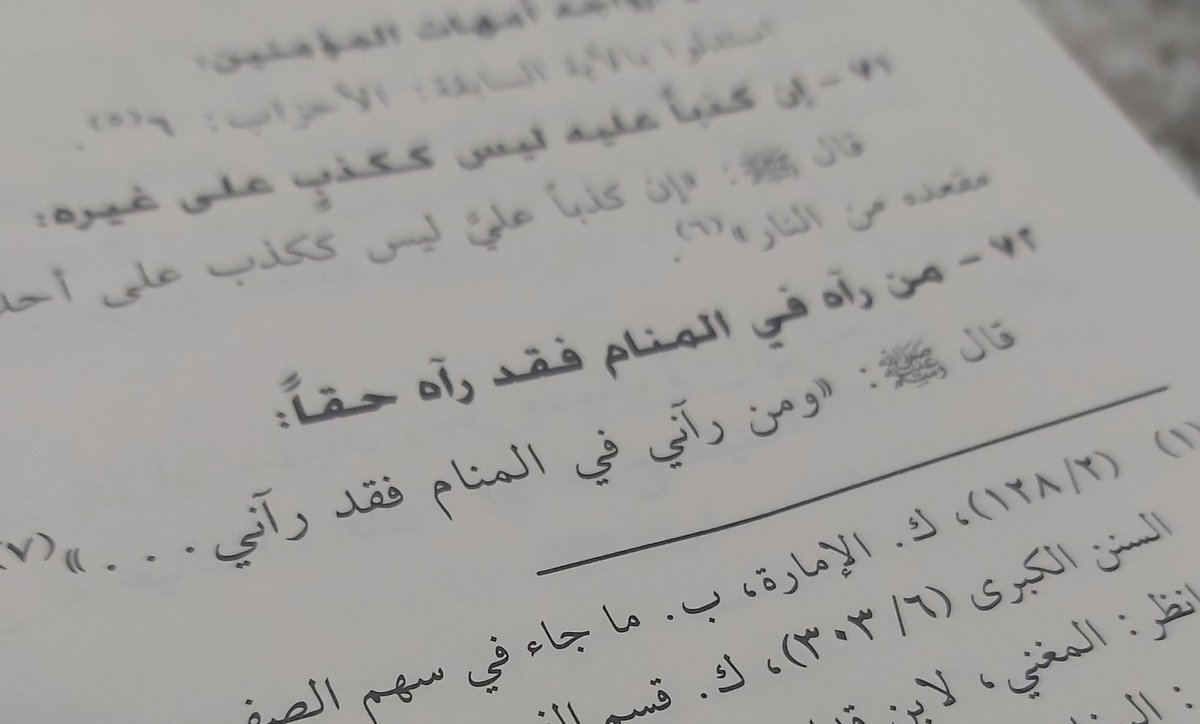 أمهات المؤمنين:
استدلوا بالآية السابقة: الأحزاب: ٦(٥).
٧١ - إن كذباً عليه ليس ككذبٍ على غيره:
قال ﷺ: «إن كذباً عليَّ ليس ككذب على أحد
مقعده من النار»(٦).
٧٢ - من رآه في المنام فقد رآه حقاً:
قال ﷺ: «ومن رآني في المنام فقد رآني . . .»(٧)
(١) (١٢٨/٢)، ك. الإمارة، ب. ما جاء في سهم الصفي
السنن الكبرى (٣٠٣/٦)، ك. قسم
انظر: المغني، لابن